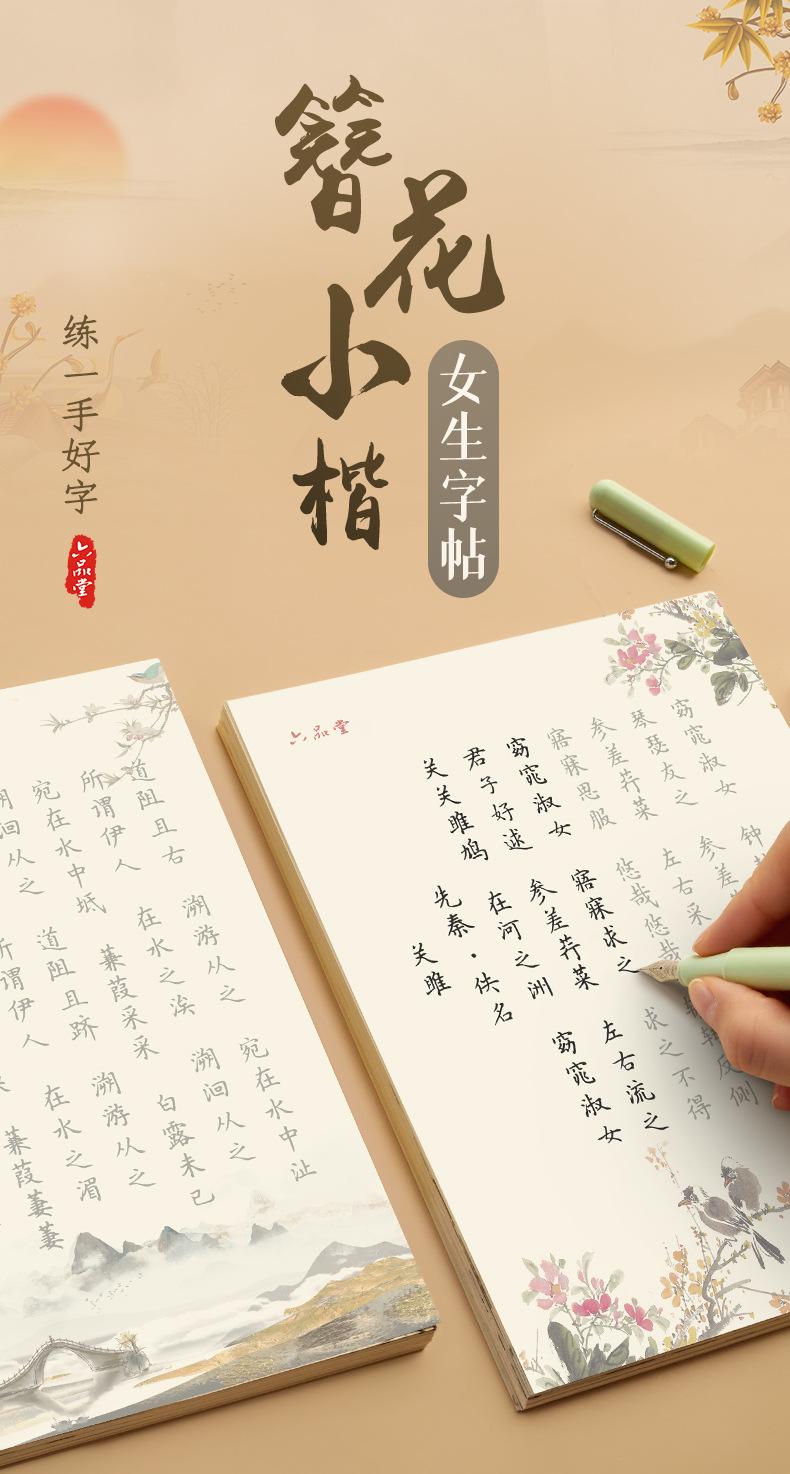 簪花小楷
女生字帖
练一手好字
六品堂
六品堂
关雎
先秦·佚名
关关雎鸠 在河之洲 窈窕淑女
君子好逑 参差荇菜 左右流之
窈窕淑女 寤寐求之 求之不得
寤寐思服 悠哉悠哉 辗转反侧
参差荇菜 左右采
琴瑟友之 参差
窈窕淑女 钟
蒹葭萋萋
所谓伊人 在水之湄
洄从之 道阻且跻 溯游从之
宛在水中坻 蒹葭采采 白露未已
所谓伊人 在水之涘 溯洄从之
道阻且右 溯游从之 宛在水中沚